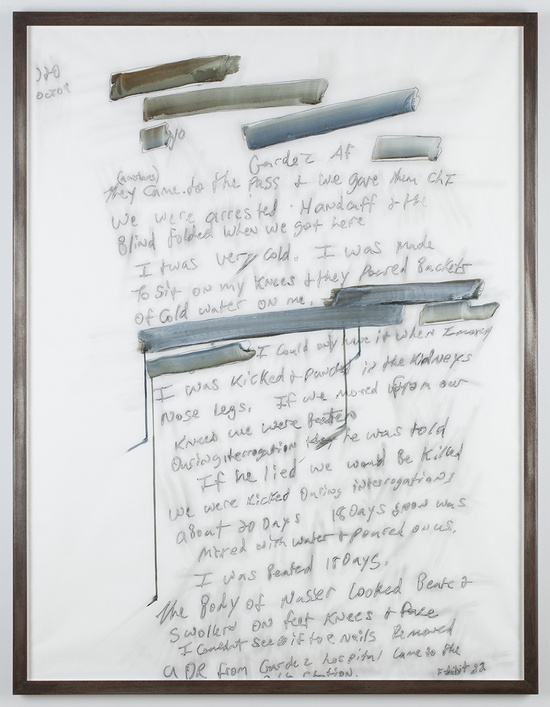 Gardez AF
(Americans)
they came to the pass & we gave them chF
We were arrested. Handcuff & the
Blind folded when we got here
I twas very cold. I was made
To sit on my Knees & they poured Buckets
of Cold water on me.
I could only
I was Kicked & in the Kidneys
Nose legs. If we moved from our
Knees we were beaten
During interrogation he was told
If he lied we would Be Killed
We were Kicked During interrogations
about 20 Days 18 Days snow was
Mixed with water & poured on us.
I was Beated 18 Days.
the Body of Nasser looked Beate &
Swolled on feet Knees & face
I Couldnt See if toe Nails Removed
a DR from Gardez hospital came to the